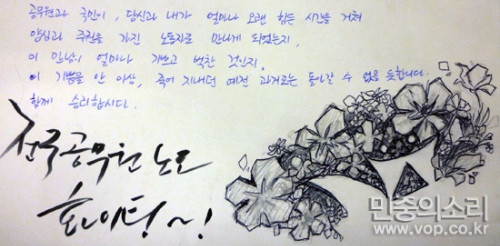 공무원과 국민이, 당신과 내가 얼마나 오랜 힘든 시간을 거쳐
양심과 주권을 가진 노동자로 만나게 되었는지,
이 만남이 얼마나 기쁘고 벅찬 것인지,
이 기쁨을 안 이상, 죽어 지내던 예전 과거로는 돌아갈 수 없을 듯합니다.
함께 승리합시다.
전국공무원노조
화이팅~!
민중의소리
www.vop.co.kr